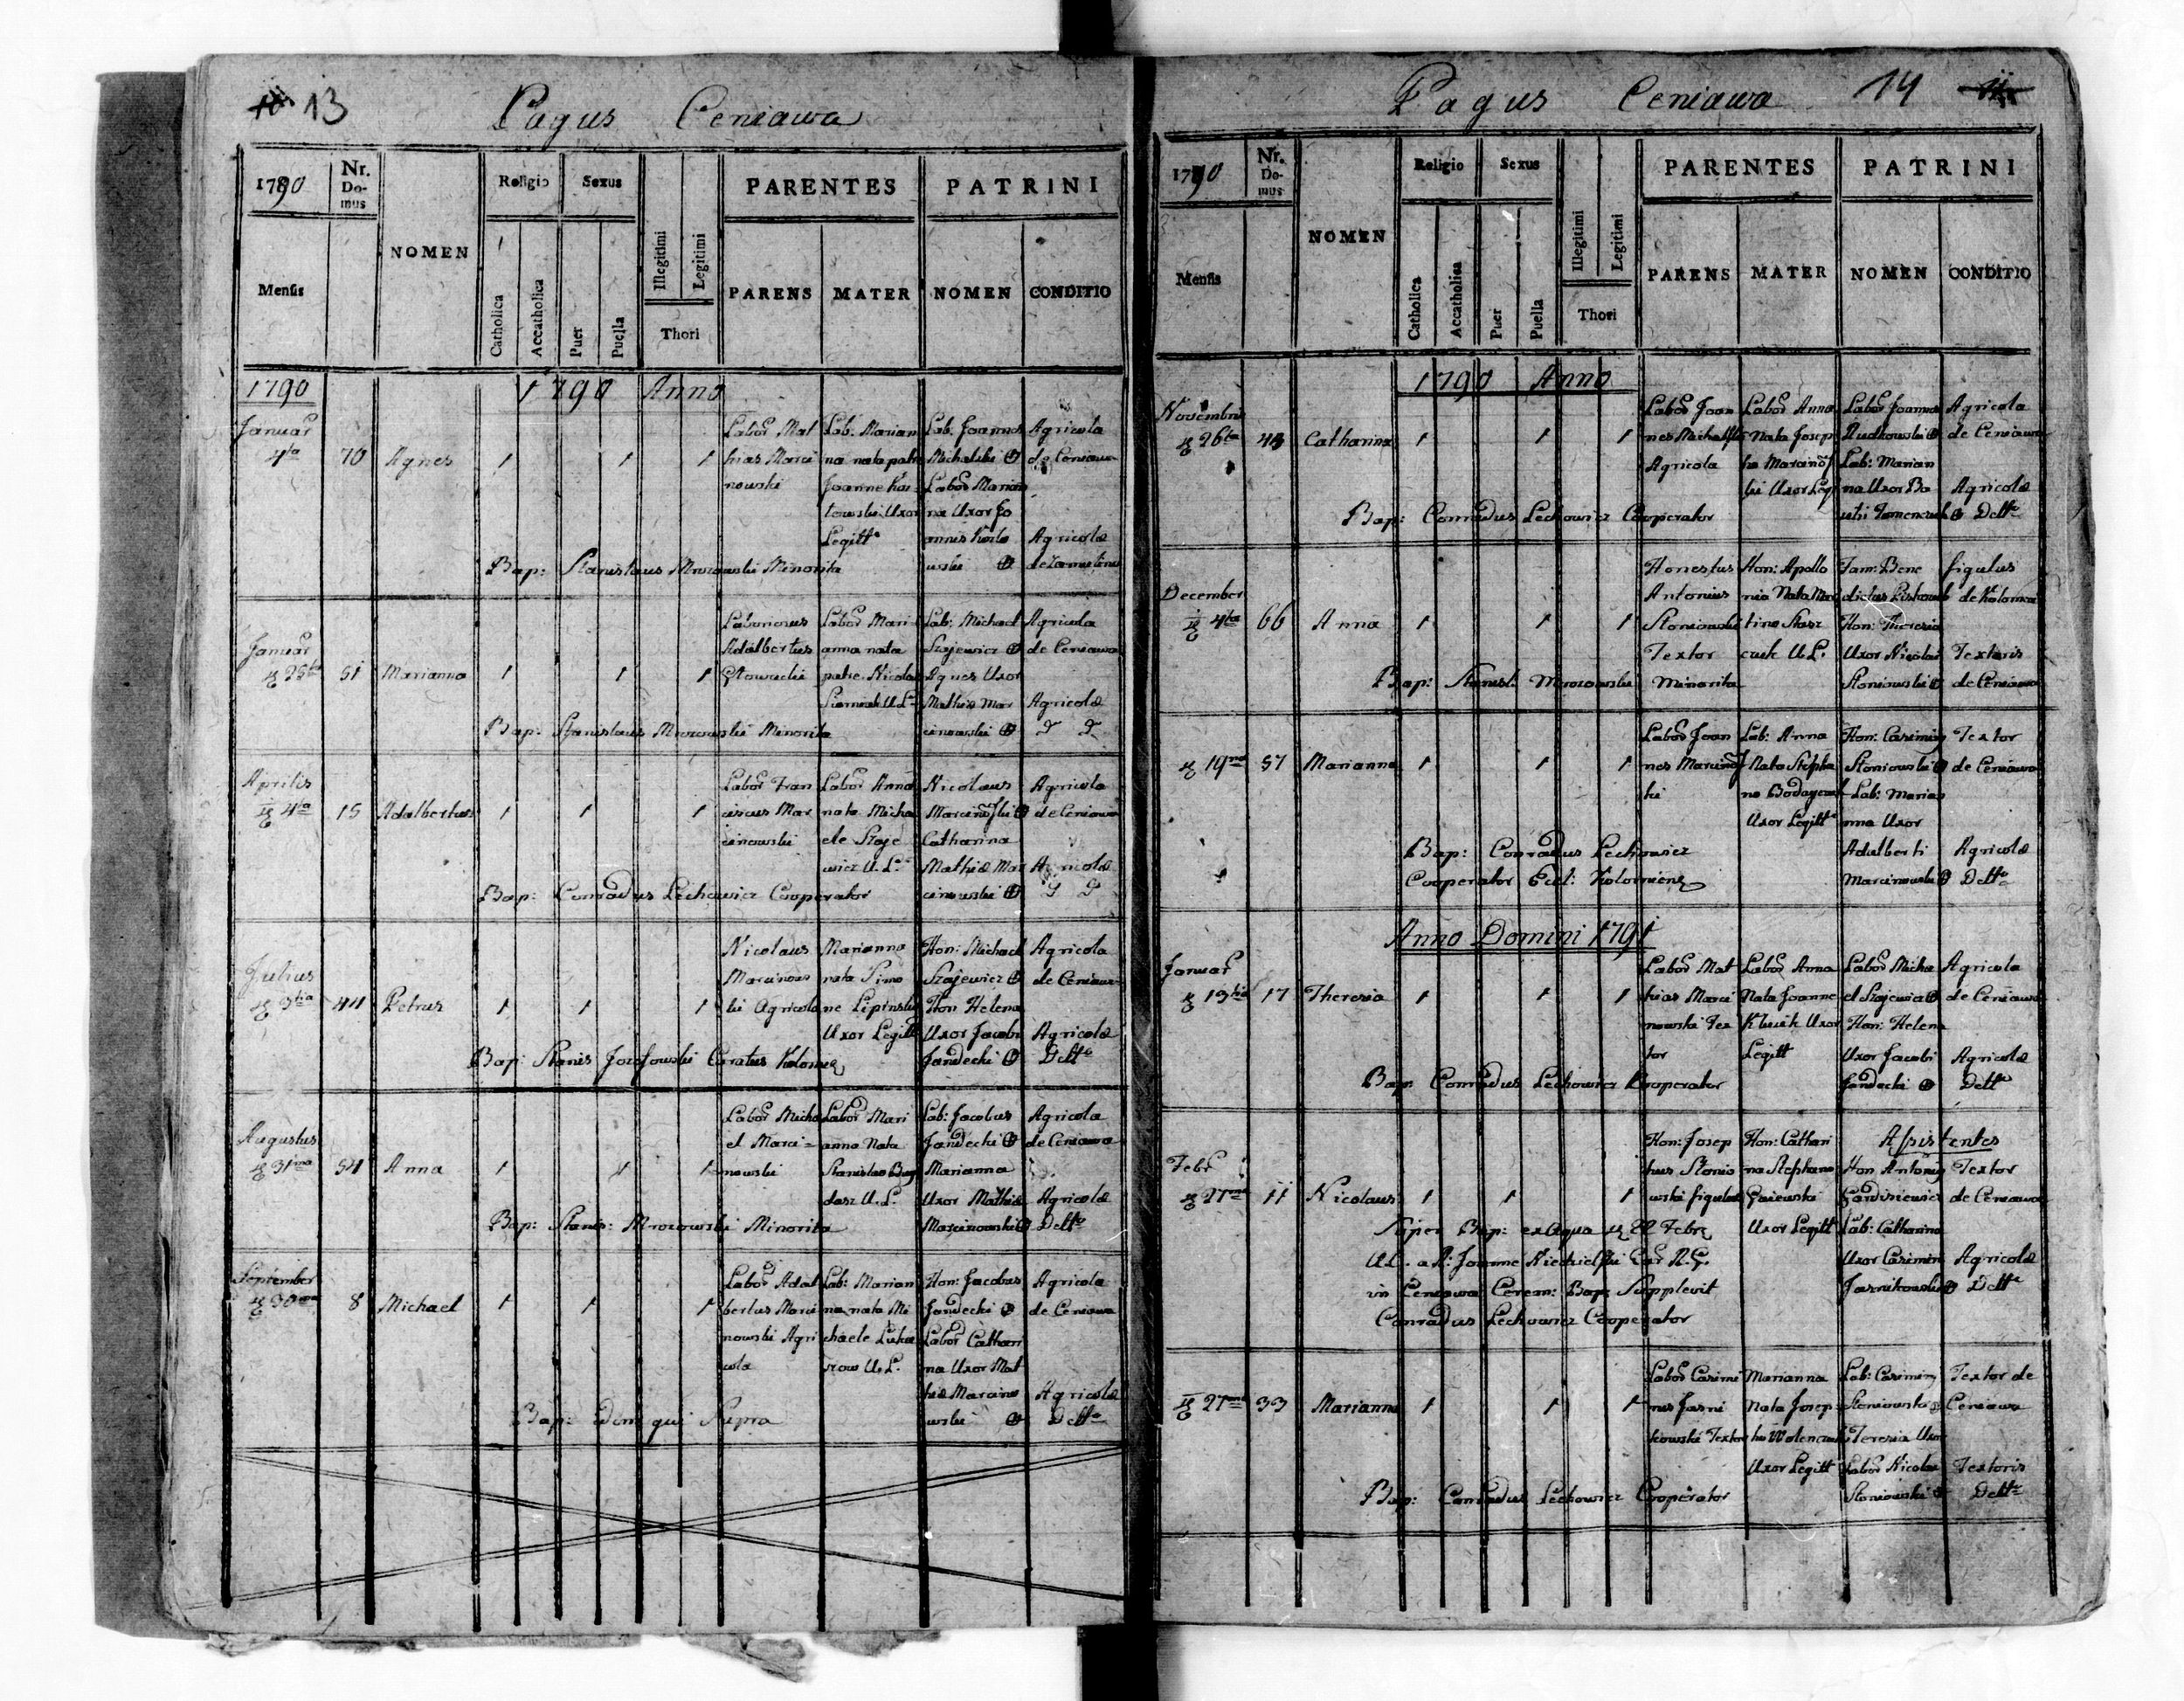 13
Pagus Ceniawa
1790
Nr. Do- mus
NOMEN
Religio
Sexus
PARENTES
PATRINI
Mensis
Catholica
Accatholica
Puer
Puella
Illegitimi
Legitimi
Thori
PARENS
MATER
NOMEN
CONDITIO
1790
1790 Anno
Januar 4ta
70
Agnes
1
1
1
Labor Mat
hias Marci
nowski
Lab. Marian
na nata patre
Joanne
Uxor
Legitt
Lab. Joannes
Michalski
Labor Marian
na Uxor Jo
annis
Agricola
de Ceniawa
Agricolæ
Bap: Stanislaus Mrozowski Minorita
Januar
51
Marianna
1
1
1
Laboriosus
Adalbertus
Głowacki
Labor Mari
anna nata
patre Nicolao
U. L.
Lab: Michael
Szajewicz
Agnes Uxor
Mathiæ Mar
cinowski
Agricola
de Ceniawa
Agricolæ
Bap: Stanislaus Mrozowski Minorita
Aprilis
4ta
15
Adalbertus
1
1
1
Labor Fran
ciscus Mar
cinowski
Labor Anna
nata Micha
ele Szaje
wicz U. L.
Nicolaus
Catharina
Mathiæ Mar
cinowski
Agricola
de Ceniawa
Agricolæ
Bap: Conradus Lechowicz Cooperator
Julius
3tia
44
Petrus
1
1
1
Nicolaus
Marcinows
ki Agricola
Marianna
nata Simo
ne Lipinski
Uxor Legitt
Hon: Michael
Szajewicz
Hon Helena
Uxor Jacobi
Jandecki
Agricola
de Ceniawa
Agricolæ
Detto
Bap: Stanis Jozofowski Curatus
Augustus
31ma
54
Anna
1
1
1
Labor Micha
el Marci=
nowski
Labor Mari
anna Nata
Stanislao
U. L.
Lab: Jacobus
Jandecki
Marianna
Uxor Mathiæ
Marcinowski
Agricola
de Ceniawa
Agricolæ
Detto
Bap: Stanis: Mrozowski Minorita
September
30ma
8
Michael
1
1
1
Labor Adal
bertus Marci
nowski Agri
cola
Lab: Marian
na nata Mi
chaele
U. L.
Hon: Jacobus
Jandecki
Labor Cathari
na Uxor Mat
hiæ Marcino
wski
Agricola
de Ceniawa
Agricolæ
Detto
Bap: Idem qui Supra
Pagus Ceniawa
14
1790
Nr. Do- mus
NOMEN
Religio
Sexus
PARENTES
PATRINI
Mensis
Catholica
Accatholica
Puer
Puella
Illegitimi
Legitimi
Thori
PARENS
MATER
NOMEN
CONDITIO
1790 Anno
Novembris
26ta
43
Catharina
1
1
1
Labor Joan
nes
Agricola
Labor Anna
Nata Josep
ho
Uxor Leg
Labor Joannes
Rudkowski
Lab: Marian
na Uxor
Agricola
de Ceniawa
Agricolæ
Detto
Bap: Conradus Lechowicz Cooperator
December
4ta
66
Anna
1
1
1
Honestus
Antonius
Słoniowski
Textor
Hon: Apollo
nia Nata Mar
tino
U. L.
Fam: Bene
dictus
Hon: Theresia
Uxor Nicolai
Słoniowski
figulus
de Kolomea
Textoris
de Ceniawa
Bap: Stanisl: Mrozowski Minorita
19na
57
Marianna
1
1
1
Labor Joan
nes
ki
Lab: Anna
Nata Stepha
no
Uxor Legitt
Hon: Casimirus
Słoniowski
Lab: Marian
nna Uxor
Adalberti
Marcinowski
Textor
de Ceniawa
Agricolæ
Detto
Bap: Conradus Lechowicz
Cooperator
Anno Domini 1791
Januar
13tia
17
Theresia
1
1
1
Labor Mat
hias Marci
nowski Tex
tor
Labor Anna
Nata Joanne
Uxor
Legitt
Labor Micha
el Szajewicz
Hon: Helena
Uxor Jacobi
Jandecki
Agricola
de Ceniawa
Agricolæ
Detto
Bap: Conradus Lechowicz Cooperator
Febr
11
Nicolaus
1
1
1
Hon: Josep
hus Słonio
wski figulus
Hon: Cathari
na Stephano
Uxor Legitt
Assistentes
Hon Antonius
Lab: Catharina
Uxor Casimiri
Textor
de Ceniawa
Agricolæ
Detto
Super Bap: ex Aqua
in Ceniawa Cerem: Bap: Supplevit
Conradus Lechowicz Cooperator
27ma
33
Marianna
1
1
1
Labor Casimi
rus Jasni
kowski Textor
Marianna
Nata Josep
ho
Uxor Legitt
Lab: Casimirus
Słoniowski
Teresia Uxor
Labor Nicolai
Słoniowski
Textor de
Ceniawa
Textoris
Detto
Bap: Conradus Lechowicz Cooperator